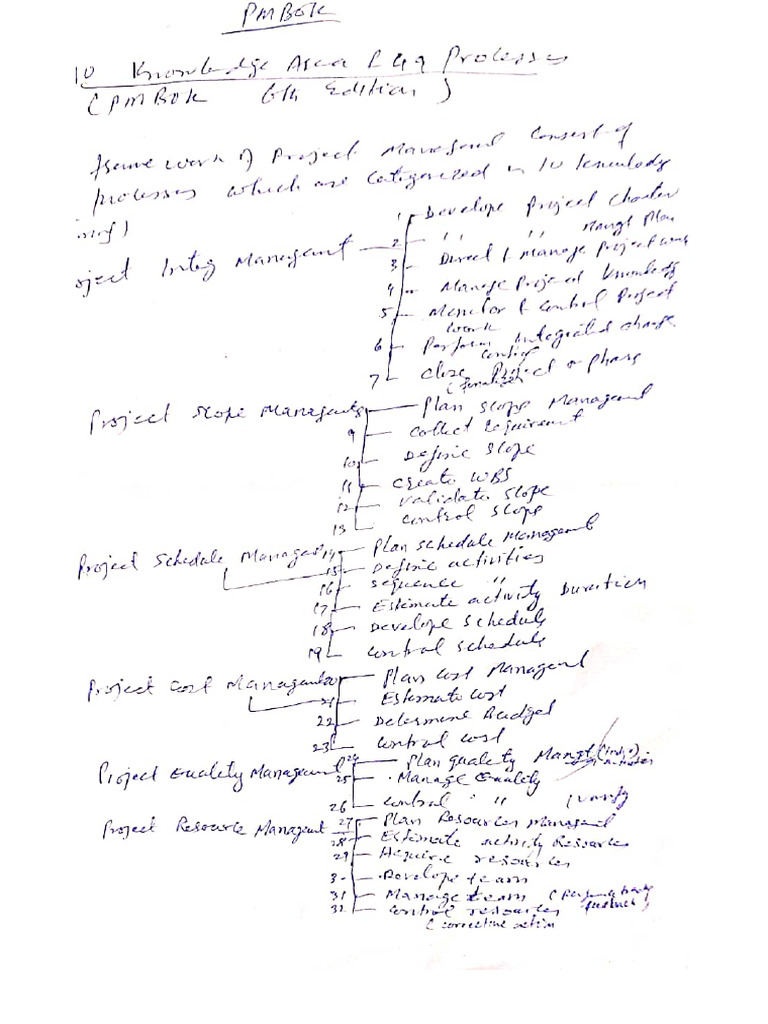 PMBOK
10 Knowledge Area & 49 Processes
(PMBOK 6th Edition)
framework of Project Managemt Consist of
processes which are Categorized in 10 knowledge
Project Integ Management
1 Develope Project Charter
2 " " Mangt Plan
3 Direct & manage Project work
4 Manage Project Knowledge
5 Monitor & Control Project
work
6 Perform Integrated change
Control
7 Close Project or phase
(finalizes
Project Scope Management
Plan Scope Management
9 collect requirement
10 Define Scope
11 create WBS
12 validate Scope
13 control Scope
Project Schedule Manage 14 Plan Schedule Management
15 Define activities
16 Sequence "
17 Estimate activity Duration
18 Develope Schedule
19 control Schedule
Project Cost Management 20 Plan Cost Managemt
21 Estimate Cost
22 Determine Budget
23 control cost
Project Quality Management 24 Plan quality Mangt
25 Manage Quality
26 control " " (verify
Project Resource Managemt 27 Plan Resources Managemt
28 Estimate activity Resources
29 Acquire resources
3- Develope team
31 Manage team
32 control resources
(corrective action